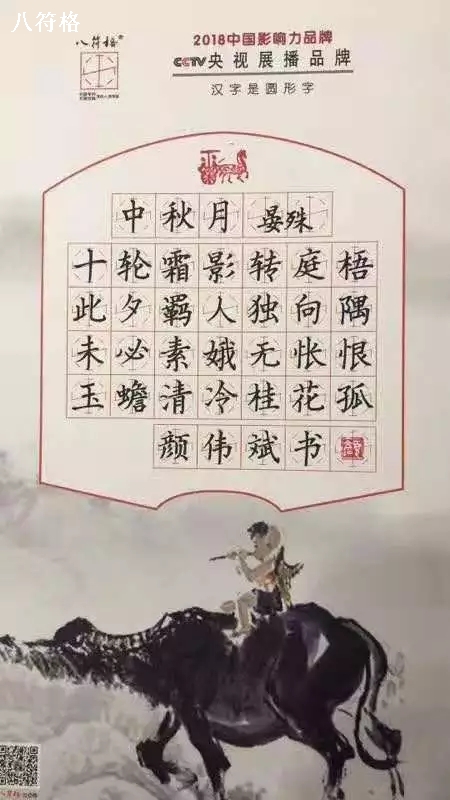 八符格
八符格®
2018中国影响力品牌
CCTV央视展播品牌
汉字是圆形字
中秋月 晏殊
十轮霜影转庭梧
此夕羁人独向隅
未必素娥无怅恨
玉蟾清冷桂花孤
颜伟斌书
八符格